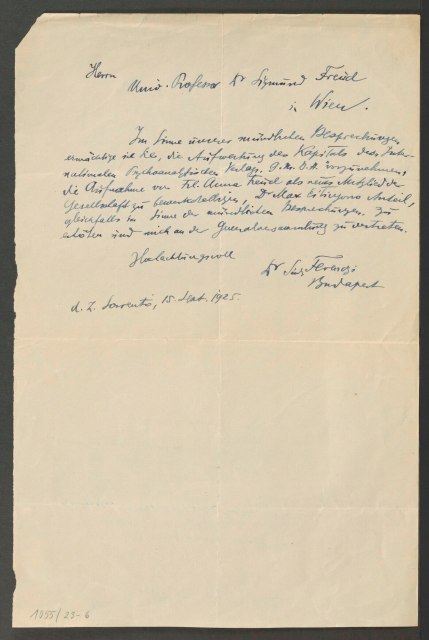 Herrn
Univ. Professor Dr Sigmund Freud
in Wien.
Im Sinne unserer mündlichen Besprechungen
ermächtige ich Sie, die Aufwertung des Kapitals des Inter-
nationalen Psychoanalytischen Verlags G.m.b.H. vorzunehmen,
die Aufnahme von Frl. Anna Freud als neues Mitglied der
Gesellschaft zu bewerkstelligen, Dr Max Eitingons Anteil,
gleichfalls im Sinne der mündlichen Besprechungen zu
erhöhen und mich an der Generalversammlung zu vertreten.
Hochachtungsvoll
Dr Ferenczi
Budapest
d. Z. Sorrento, 15 Sept. 1925.
1055/23-6